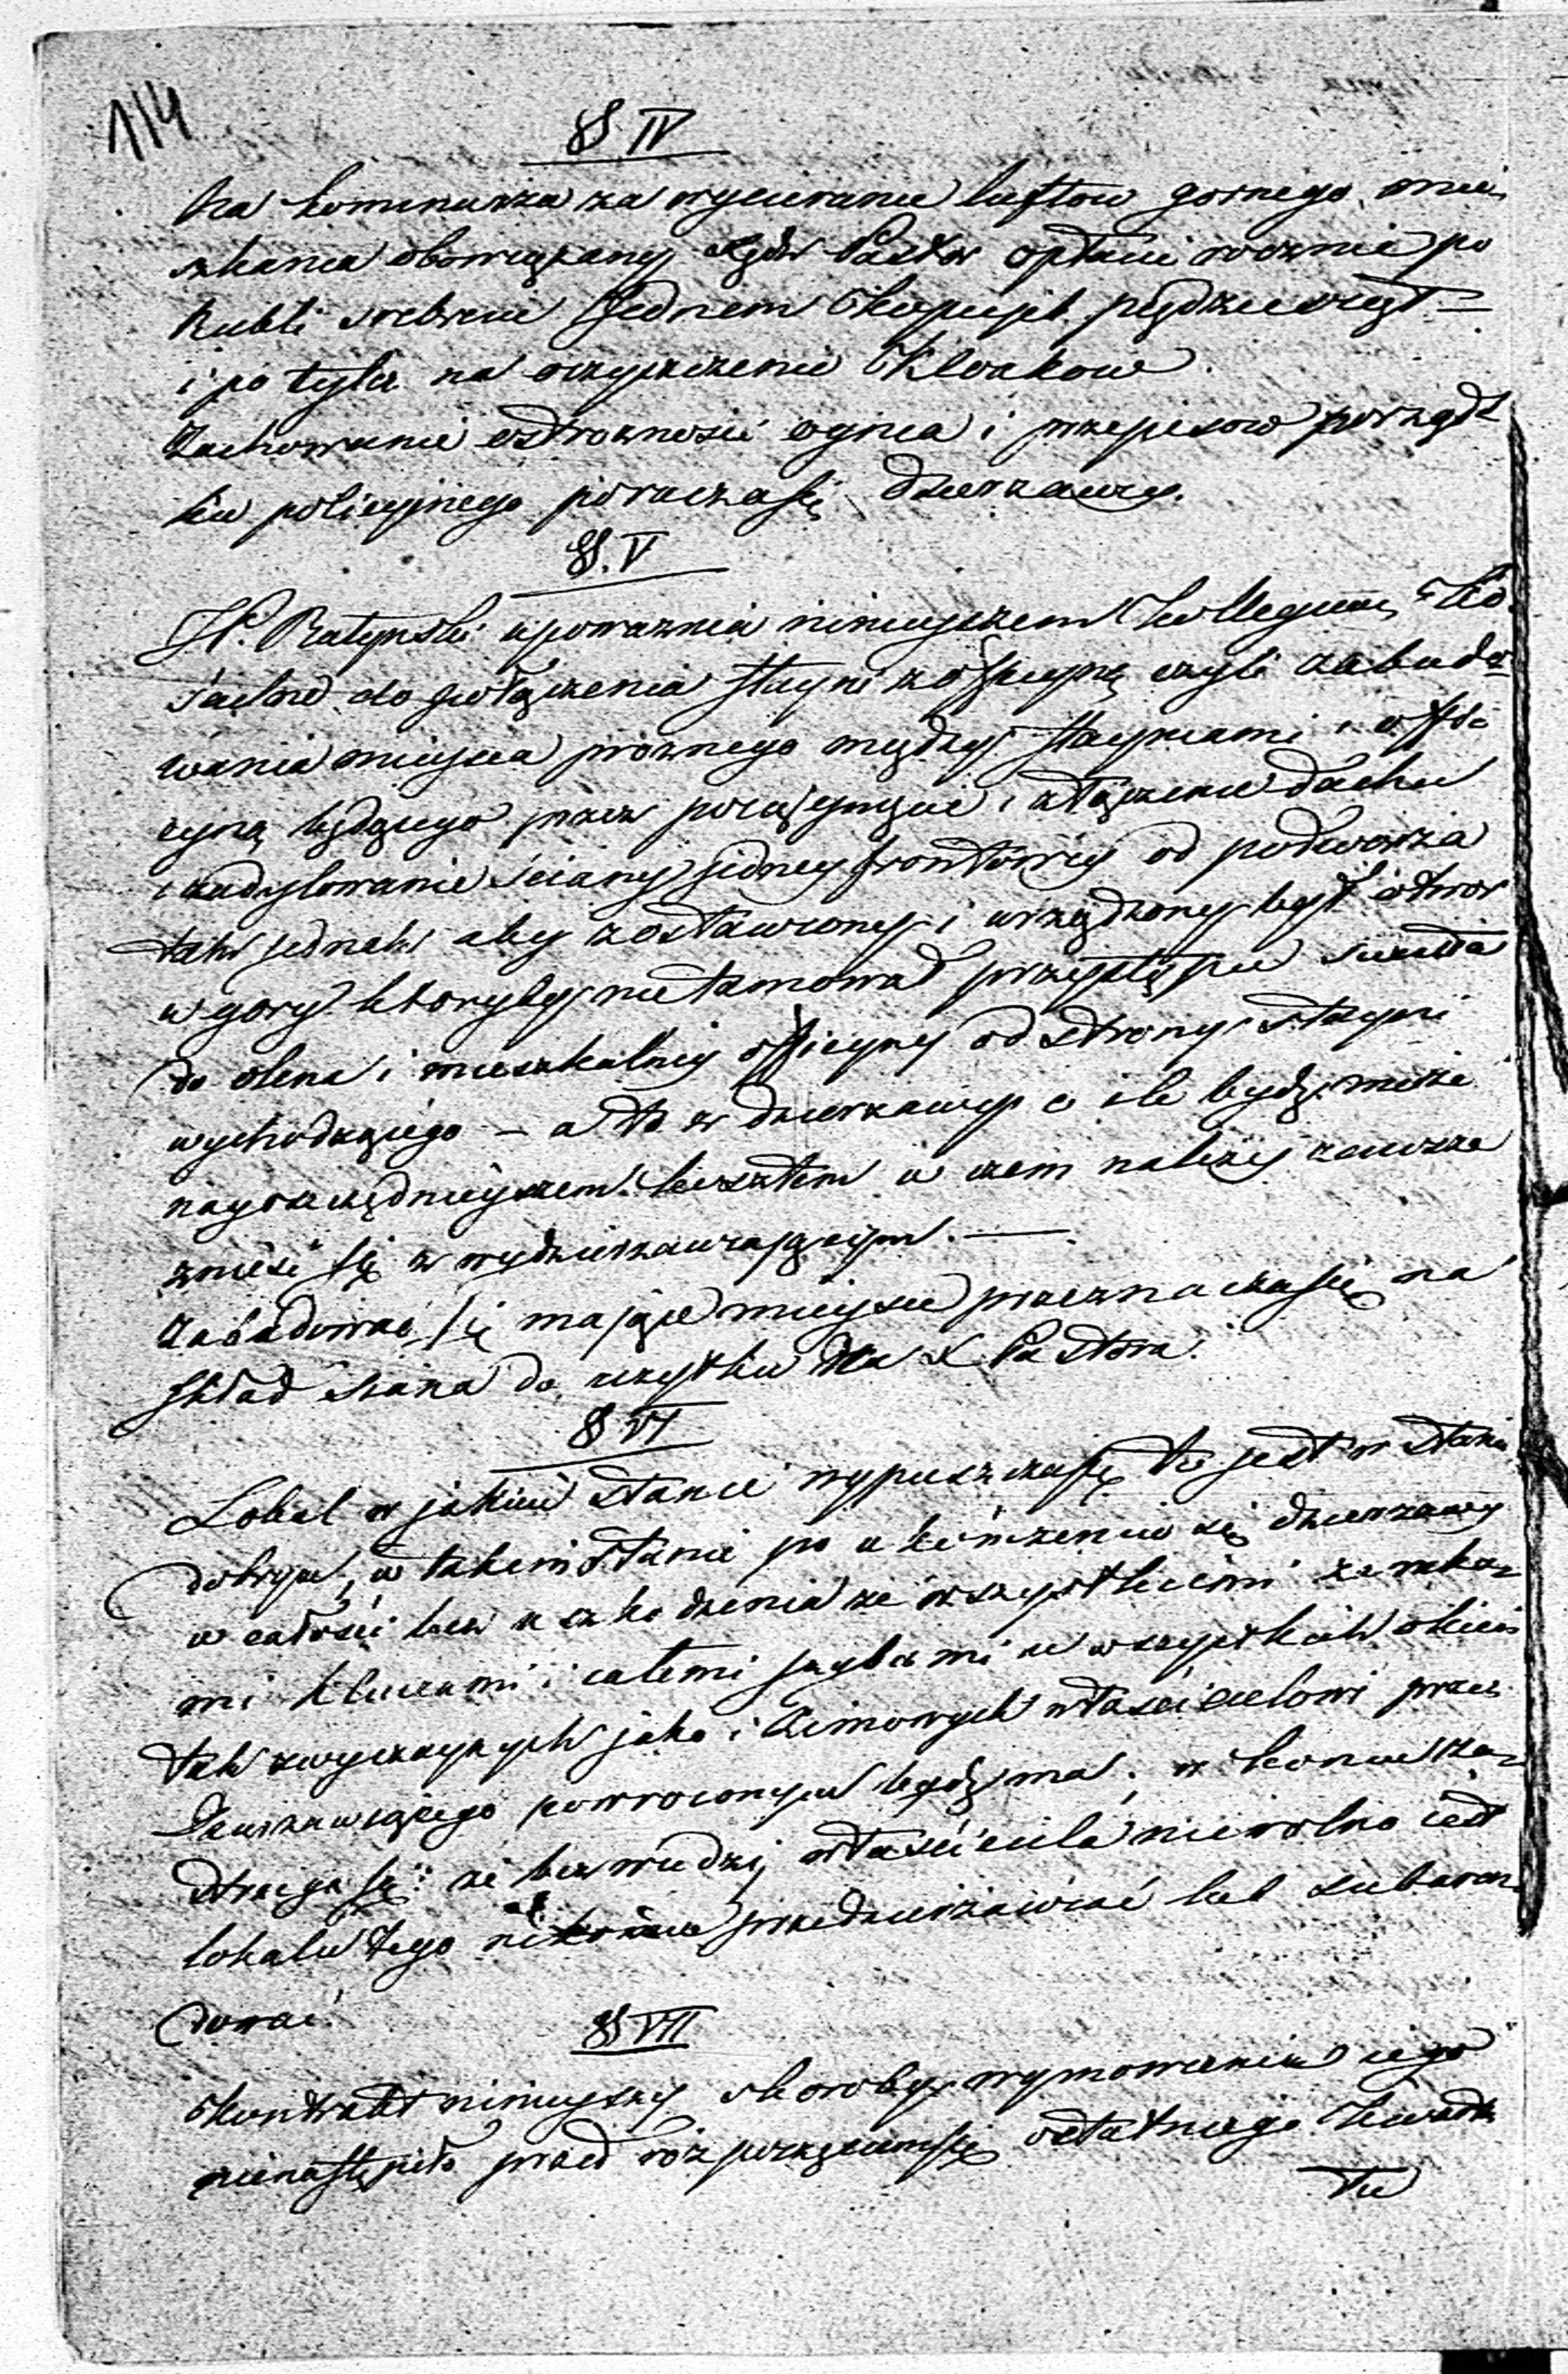 114
§ IV
Na kominiarza za wycieranie luftow gornego mie
szkania obowiązany Xądz Pastor opłacic rocznie po
Rubli srebrem Jednem Kopiejek pięćdziesiąt —
i po tyleż na oczyszczenie Kloakow.
Zachowanie ostrożności ognia i przepisow porząd
ku policyjnego porucza się dzierżawcy.
§. V
JP. Ratynski upoważnia niniejszem Kollegium Ko
ścielne do połączenia stayni z officyną czyli zabudo
wania mieysca prożnego między stayniami i offi
cyną będącego przez pociągnięcie i złączenie dachu
i zadylowanie ściany jedney frontowey od podworza
tak jednak aby zostawiony i urządzony był otwor
w gory ktoryby nie tamował przystępu swiatła
do okna i mieszkalney officyny od strony stayni
wychodzącego — a to z dzierżawcy o ile bydz może
nayoszczędnieyszem kosztem w czem należy zawsze
znieść się z wydzierżawiającym. —
Zabudować się mające mieysce przeznacza się na
skład siana do użytku dla X Pastora.
§ VI
Lokal w jakim stanie wypuszcza się to jest w stanie
dobrym, w takim stanie po ukończeniu się dzierżawy
w całości bez uszkodzenia ze wszystkiemi zamka-
mi kluczami i całemi szybami we wszystkich oknach
tak zwyczaynych jako i zimowych właścicielowi przez
Dzierżawiącego powroconym bydz ma; w koncu za-
strzega się: że bez wiedzy właściciela niewolno jest
lokalu tego nikomu przedzierżawiać lub subaren-
dować.
§ VII
Kontrakt ninieyszy skoroby wymowienie jego
nienastąpiło przed rozpoczęciem się ostatniego kwarta
łu